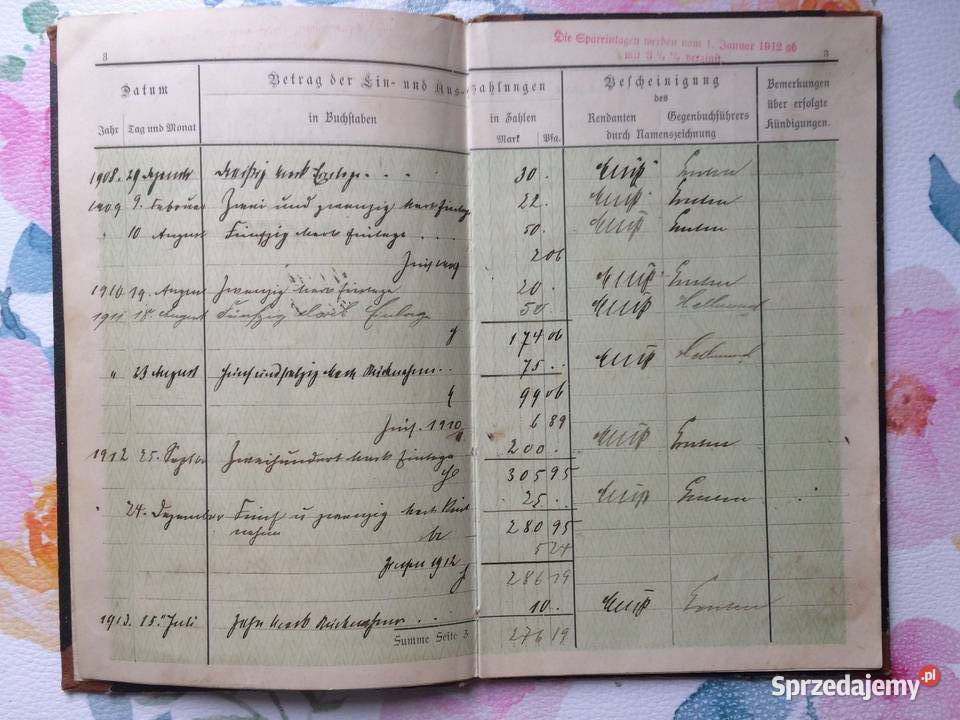 Die Spareinlagen werden vom 1. Januar 1912 ab
mit 3 ½ % verzinst
3 3
Datum Betrag der Ein- und Aus- zahlungen Bescheinigung Bemerkungen
des über erfolgte
Jahr Tag und Monat in Buchstaben in Zahlen Rendanten Gegenbuchführers Kündigungen.
Mark Pfg. durch Namenszeichnung
1908. 29 Dezember dreißig Mark Einlage 30.
1909 9. Februar Zwei und zwanzig Mark Einlage 22.
" 10 August Fünfzig Mark Einlage 50.
2 06
1910 19. August Zwanzig Mark Einlage 20.
1911 18. August Fünfzig Mark Einlage 50.
174 06
" 23 August Fünfundsiebzig Mark Rücknahme 75..
99 06
Zins. 1910/11 6 89
1912 25. Septbr Zweihundert Mark Einlage 200.
305 95
" 24. Dezember Fünf u zwanzig Mark Rück 25.
nahme
280 95
Zinsen 1912 5 24
286 19
1913. 15. Juli Zehn Mark Rücknahme 10..
Summe Seite 3 276 19
Sprzedajemy.pl